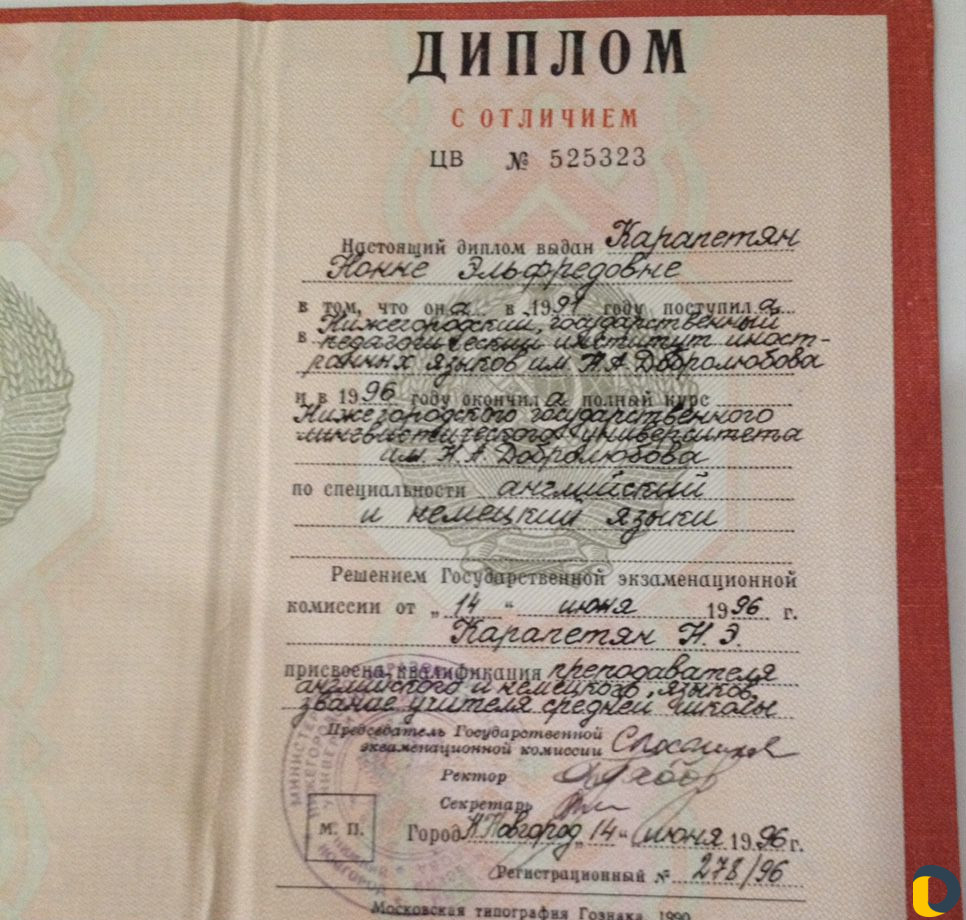 ДИПЛОМ
С ОТЛИЧИЕМ
ЦВ № 525323
Настоящий диплом выдан Карапетян
Нонне Эльфредовне
в том, что она в 1991 году поступила
в Нижегородский государственный
педагогический институт иност-
ранных языков им. Н А Добролюбова
и в 1996 году окончила полный курс
Нижегородского государственного
лингвистического университета
им. Н. А Добролюбова
по специальности английский
и немецкий языки
Решением Государственной экзаменационной
комиссии от „14“ июня 1996 г.
Карапетян Н. Э.
присвоена квалификация преподавателя
английского и немецкого языков,
звание учителя средней школы
Председатель Государственной
экзаменационной комиссии
Ректор
Секретарь
М. П.
Город Н Новгород „14“ июня 1996 г.
Регистрационный № 278/96
Московская типография Гознака. 1990.